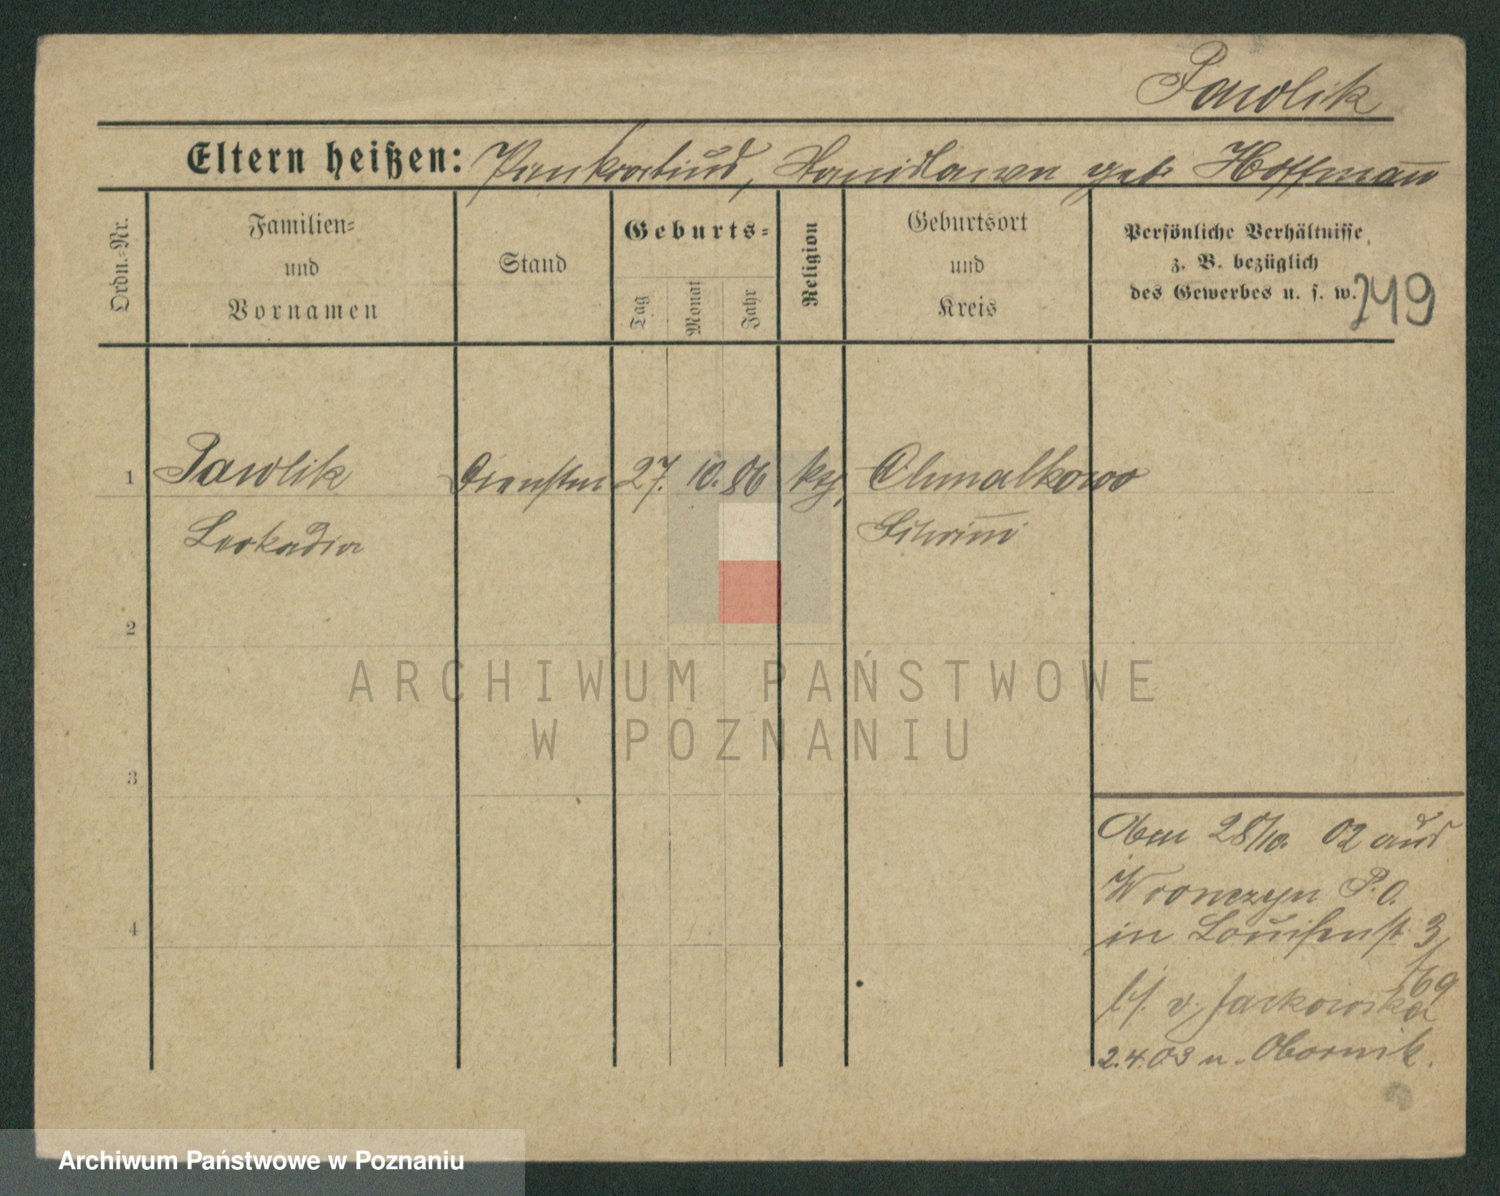 Pawlik
Eltern heißen: Pankratius, Stanislawa geb. Hoffmann
Ordn.-Nr.
Familien-
und
Vornamen
Stand
Geburts-
Tag
Monat
Jahr
Religion
Geburtsort
und
Kreis
Persönliche Verhältnisse
z. B. bezüglich
des Gewerbes u. s. w.
749
1 Pawlik 27. 10. 86 Chmalkowo
Leokadia
2
3
4
28/10. 02 aus
Wronczyn P. O.
in Louisenst 3
b/. v. Jackowska
2.4.03 n. Obornik.
ARCHIWUM PAŃSTWOWE
W POZNANIU
Archiwum Państwowe w Poznaniu